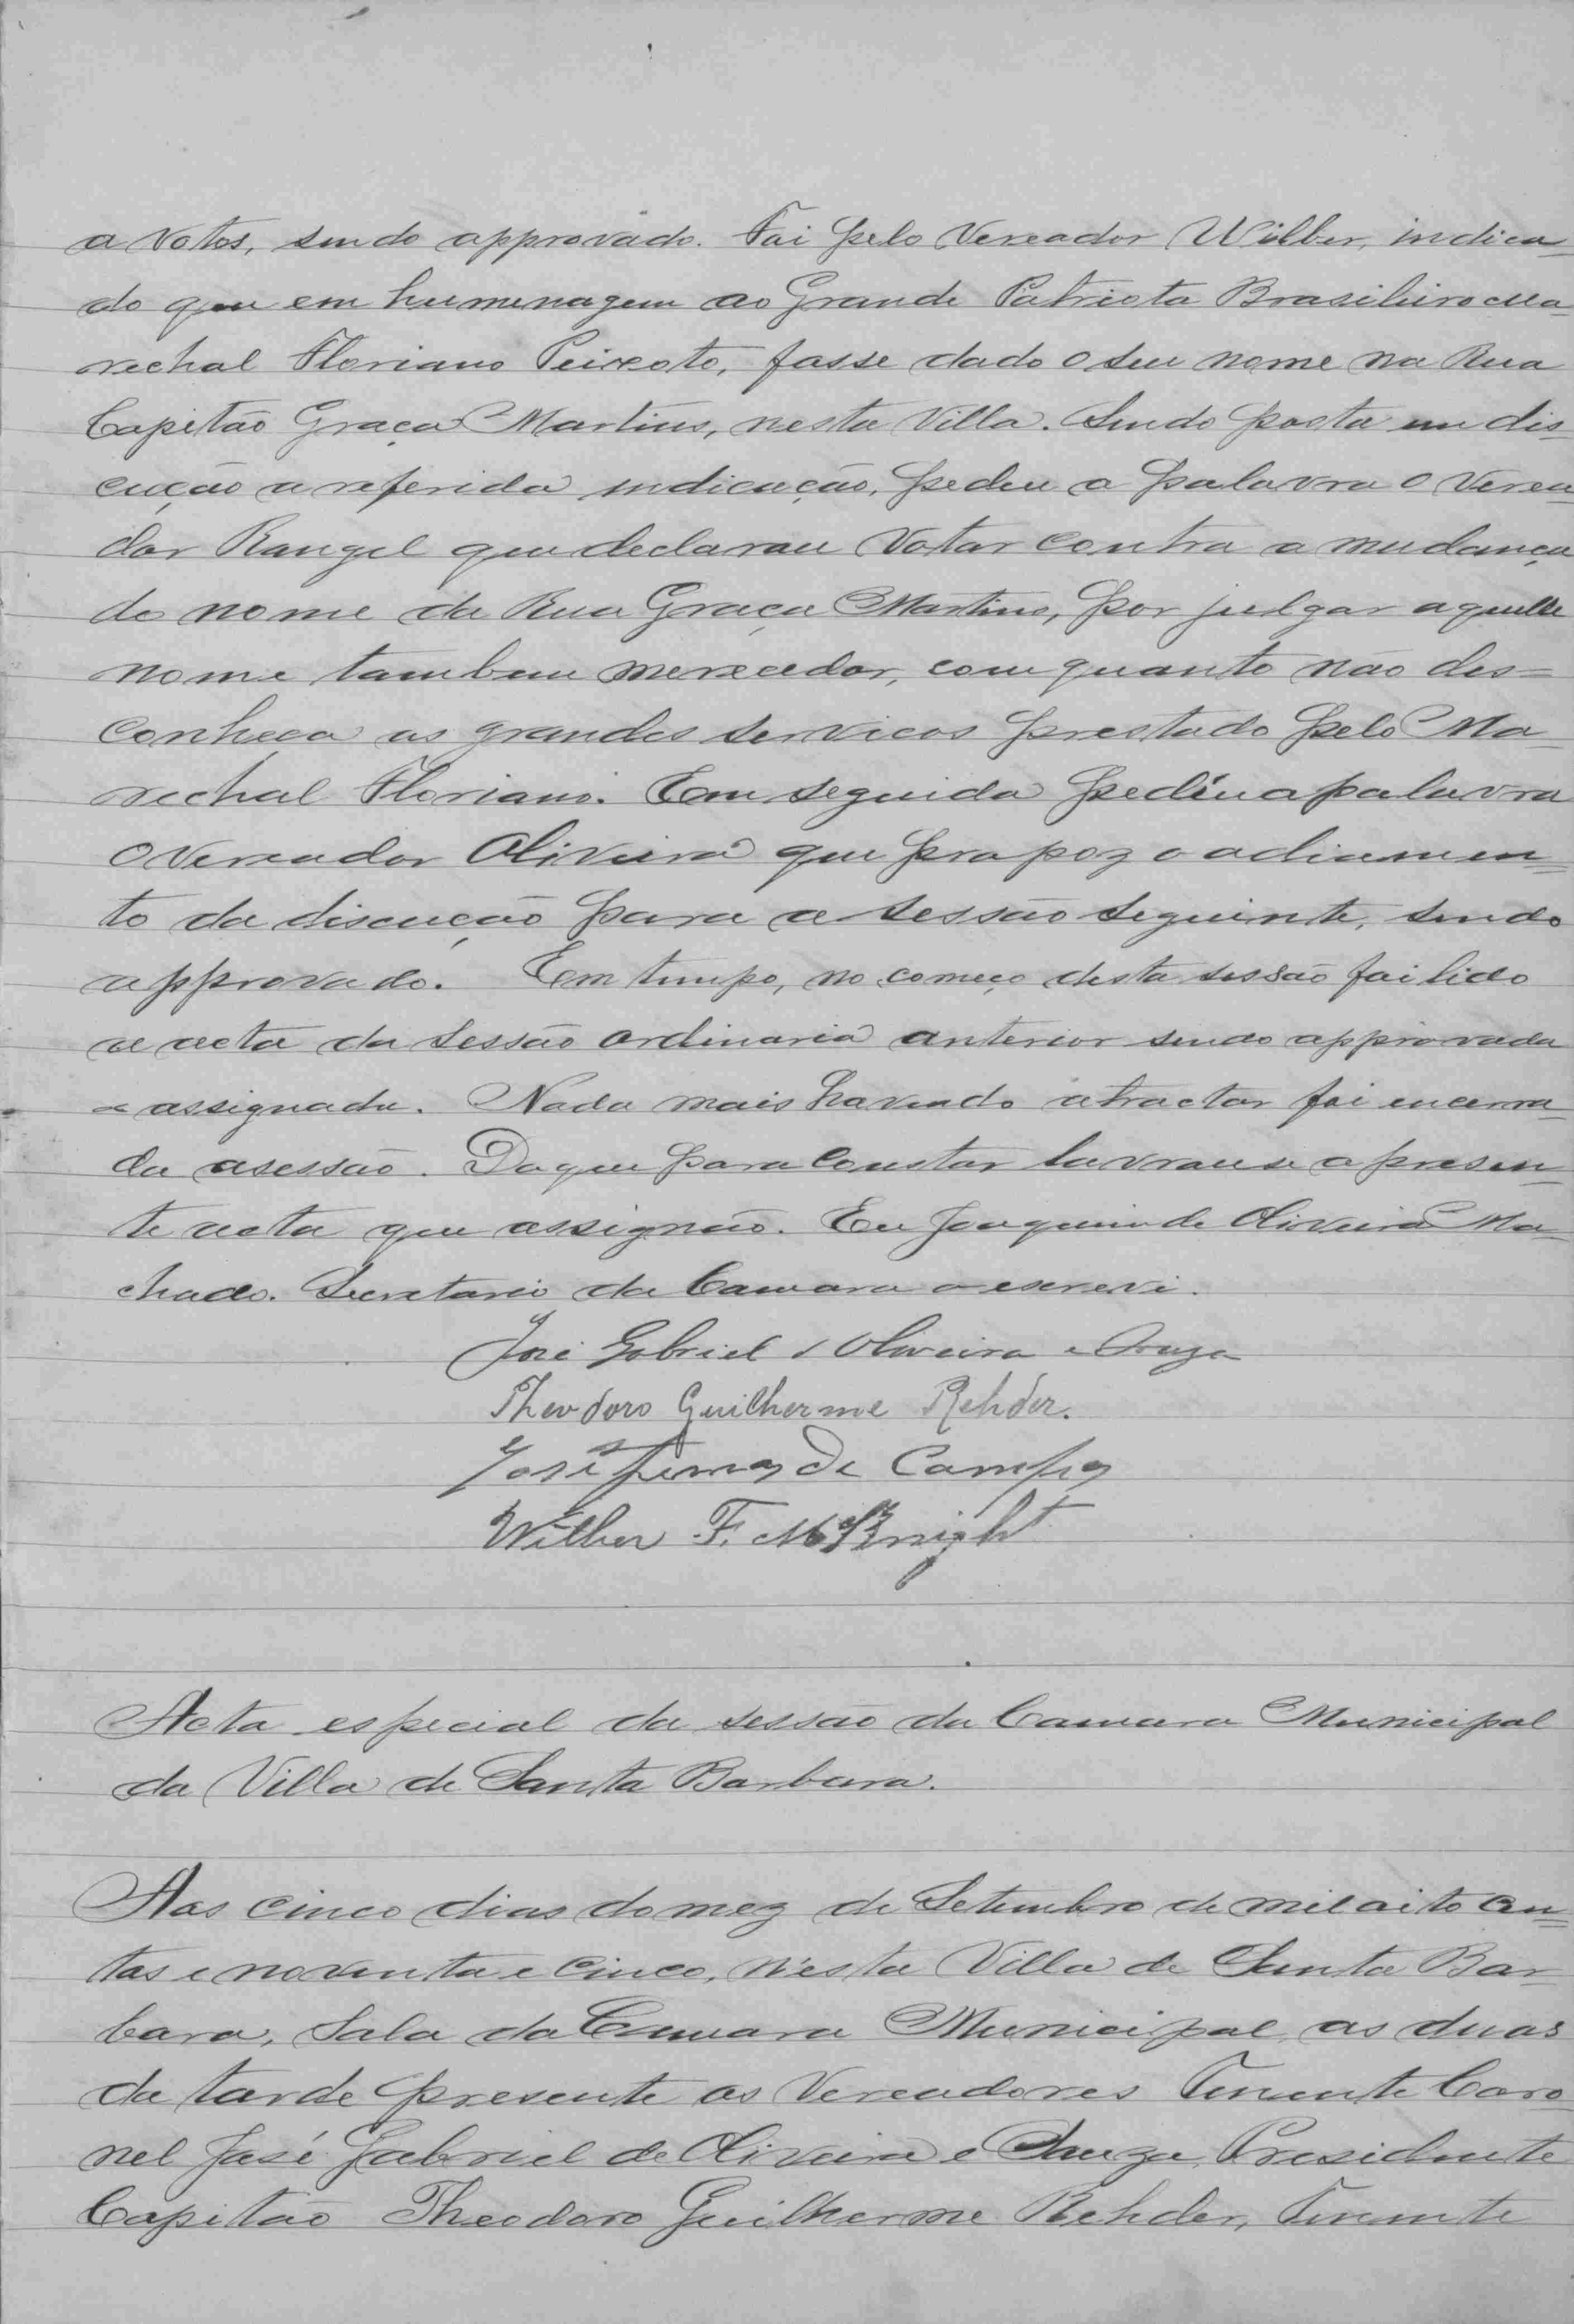 a votos, sendo approvado. Foi pelo Vereador Wilber, indica-
do que em humenagem ao Grande Patriota Brasileiro Ma-
rechal Floriano Peixoto, fosse dado o seu nome na Rua
Capitão Graça Martins, nesta Villa. Sendo posta em dis-
cução a referida indicação, pedeu a palavra o Verea-
dor Rangel que declarou votar contra a mudança
do nome da Rua Graça Martins, por julgar aquelle
nome tambem merecedor, com quanto não des=
conheça os grandes serviços prestado pelo Ma-
rechal Floriano. Em seguida pediu a palavra
o Vereador Oliveira que propoz o adiamen=
to da discução para a sessão seguinte, sendo
approvado. Em tempo, no começo desta sessão foi lido
a acta da sessão ordinaria anterior sendo approvada
e assignada. Nada mais havendo a tractar foi encerra-
da a sessão. Do que para constar lavrou-se a presen-
te acta que assignão. Eu Joaquim de Oliveira Ma-
chado. Secretario da Camara o escrevi.
José Gabriel d'Oliveira e Souza
Theodoro Guilherme Rehder.
José de Campos
Wilber F. McKnight
Acta especial da sessão da Camara Municipal
da Villa de Santa Barbara.
Aos cinco dias do mez de Setembro de mil oito cen=
tos e noventa e cinco, n'esta Villa de Santa Bar-
bara, Sala da Camara Municipal, as duas
da tarde presente os Vereadores Tenente Coro-
nel José Gabriel de Oliveira e Souza, Presidente
Capitão Theodoro Guilherme Rehder, Tenente